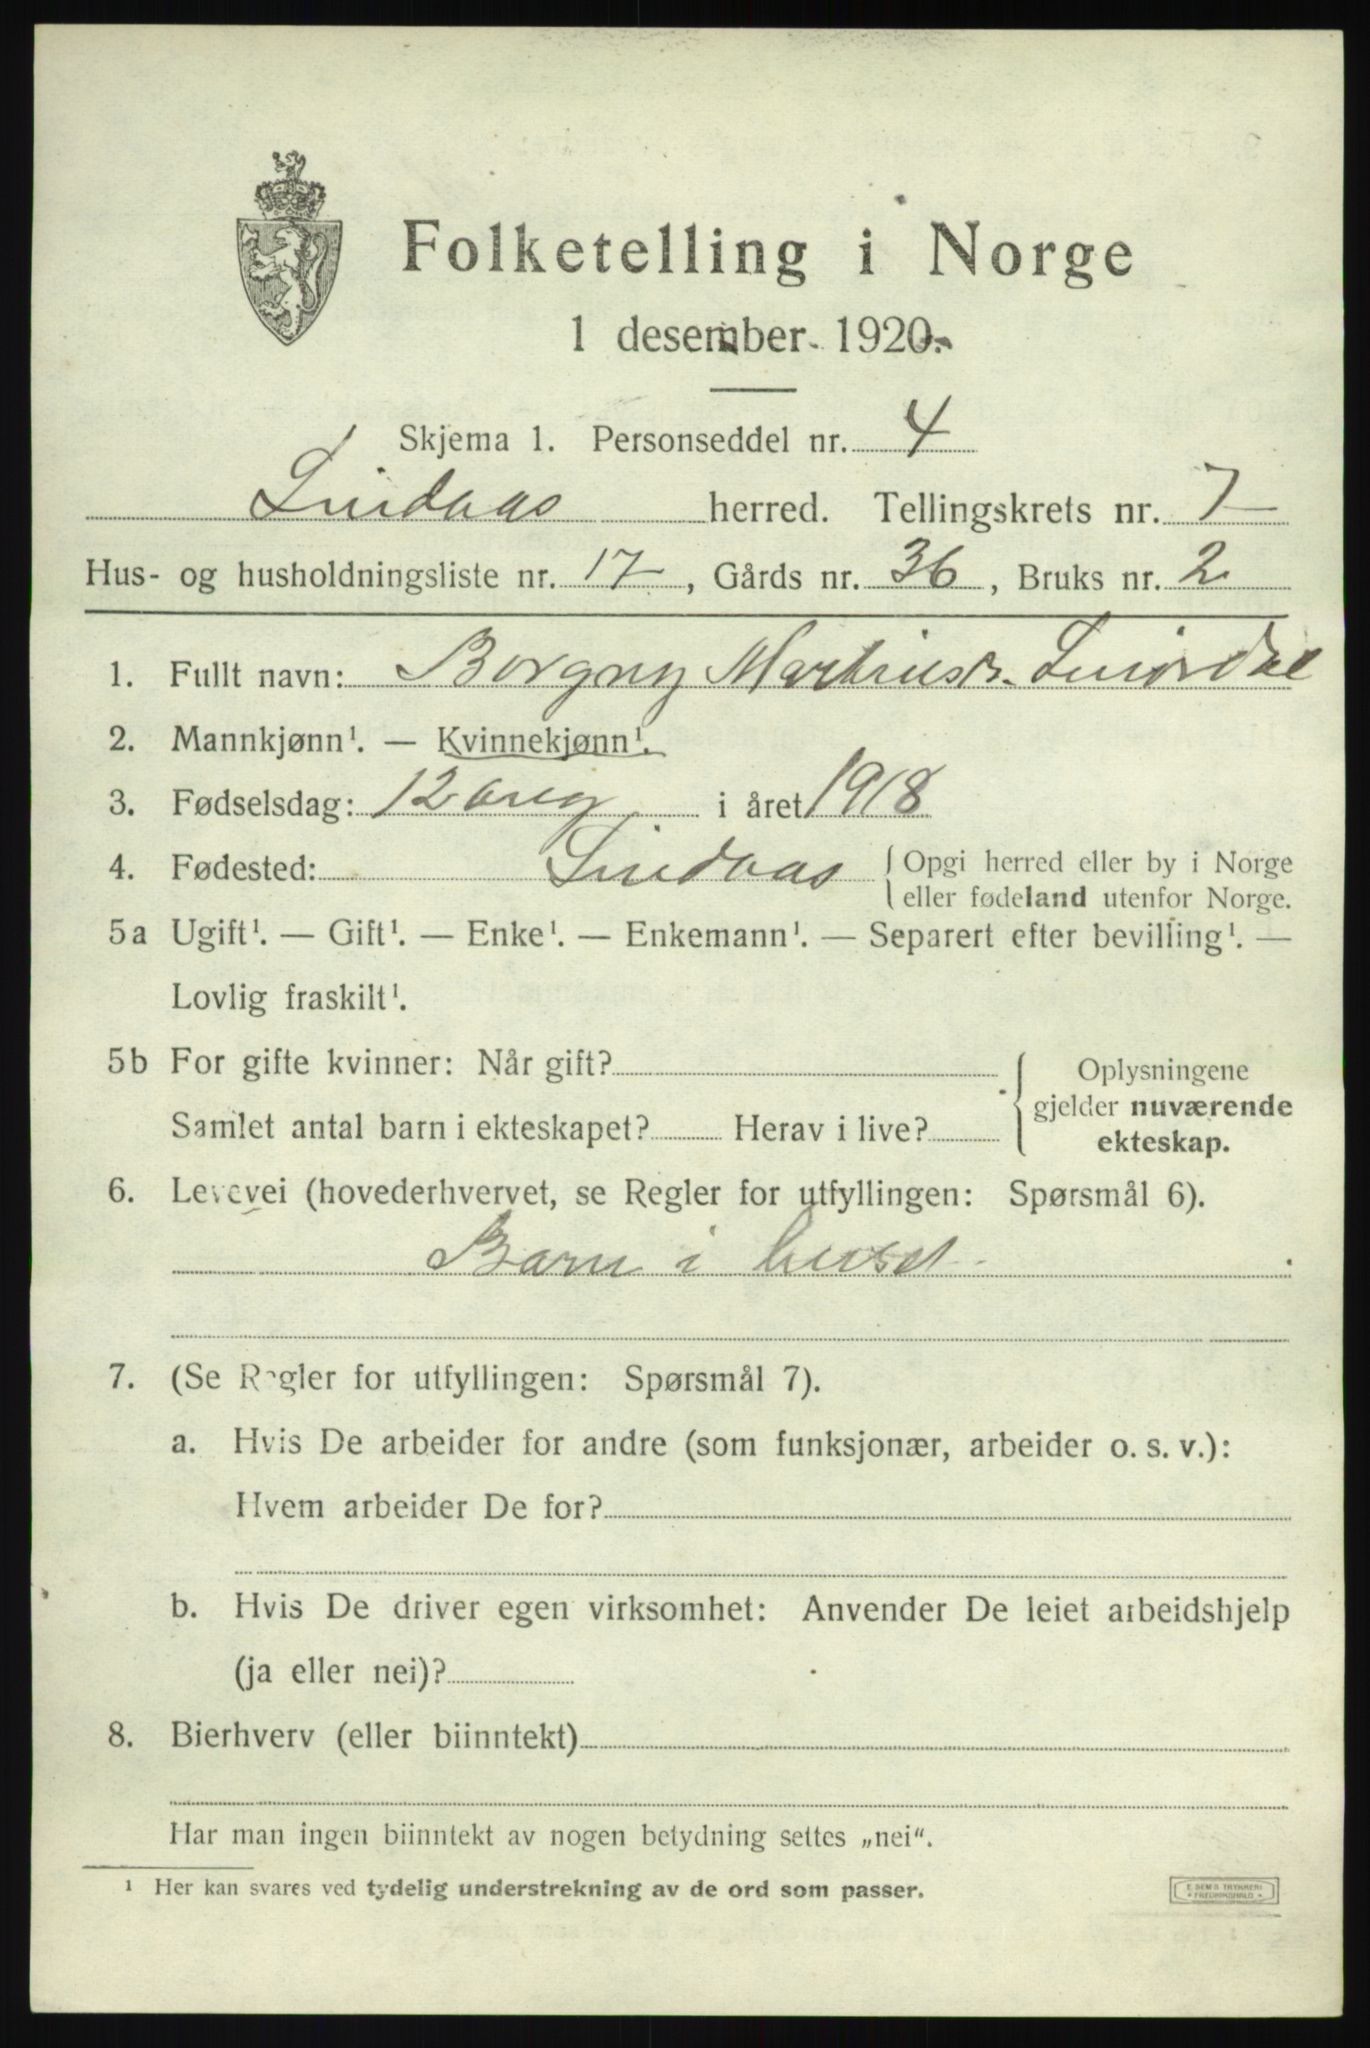 Folketelling i Norge
1 desember 1920.
Skjema 1. Personseddel nr. 4
Lindaas herred. Tellingskrets nr. 7
Hus- og husholdningsliste nr. 17, Gårds nr. 36, Bruks nr. 2
1. Fullt navn: Borgny
2. Mannkjønn¹. — Kvinnekjønn¹.
3. Fødselsdag: 12 i året 1918
4. Fødested: Lindaas { Opgi herred eller by i Norge
eller fødeland utenfor Norge.
5a Ugift¹. — Gift¹. — Enke¹. — Enkemann¹. — Separert efter bevilling¹. —
Lovlig fraskilt¹.
5b For gifte kvinner: Når gift?
Samlet antal barn i ekteskapet? Herav i live?
Oplysningene
gjelder nuværende
ekteskap.
6. Levevei (hovederhvervet, se Regler for utfyllingen: Spørsmål 6).
Barn i huset
7. (Se Regler for utfyllingen: Spørsmål 7).
a. Hvis De arbeider for andre (som funksjonær, arbeider o. s. v.):
Hvem arbeider De for?
b. Hvis De driver egen virksomhet: Anvender De leiet arbeidshjelp
(ja eller nei)?
8. Bierhverv (eller biinntekt)
Har man ingen biinntekt av nogen betydning settes „nei“.
¹ Her kan svares ved tydelig understrekning av de ord som passer.
E. SEMS TRYKKERI
FREDRIKSHALD